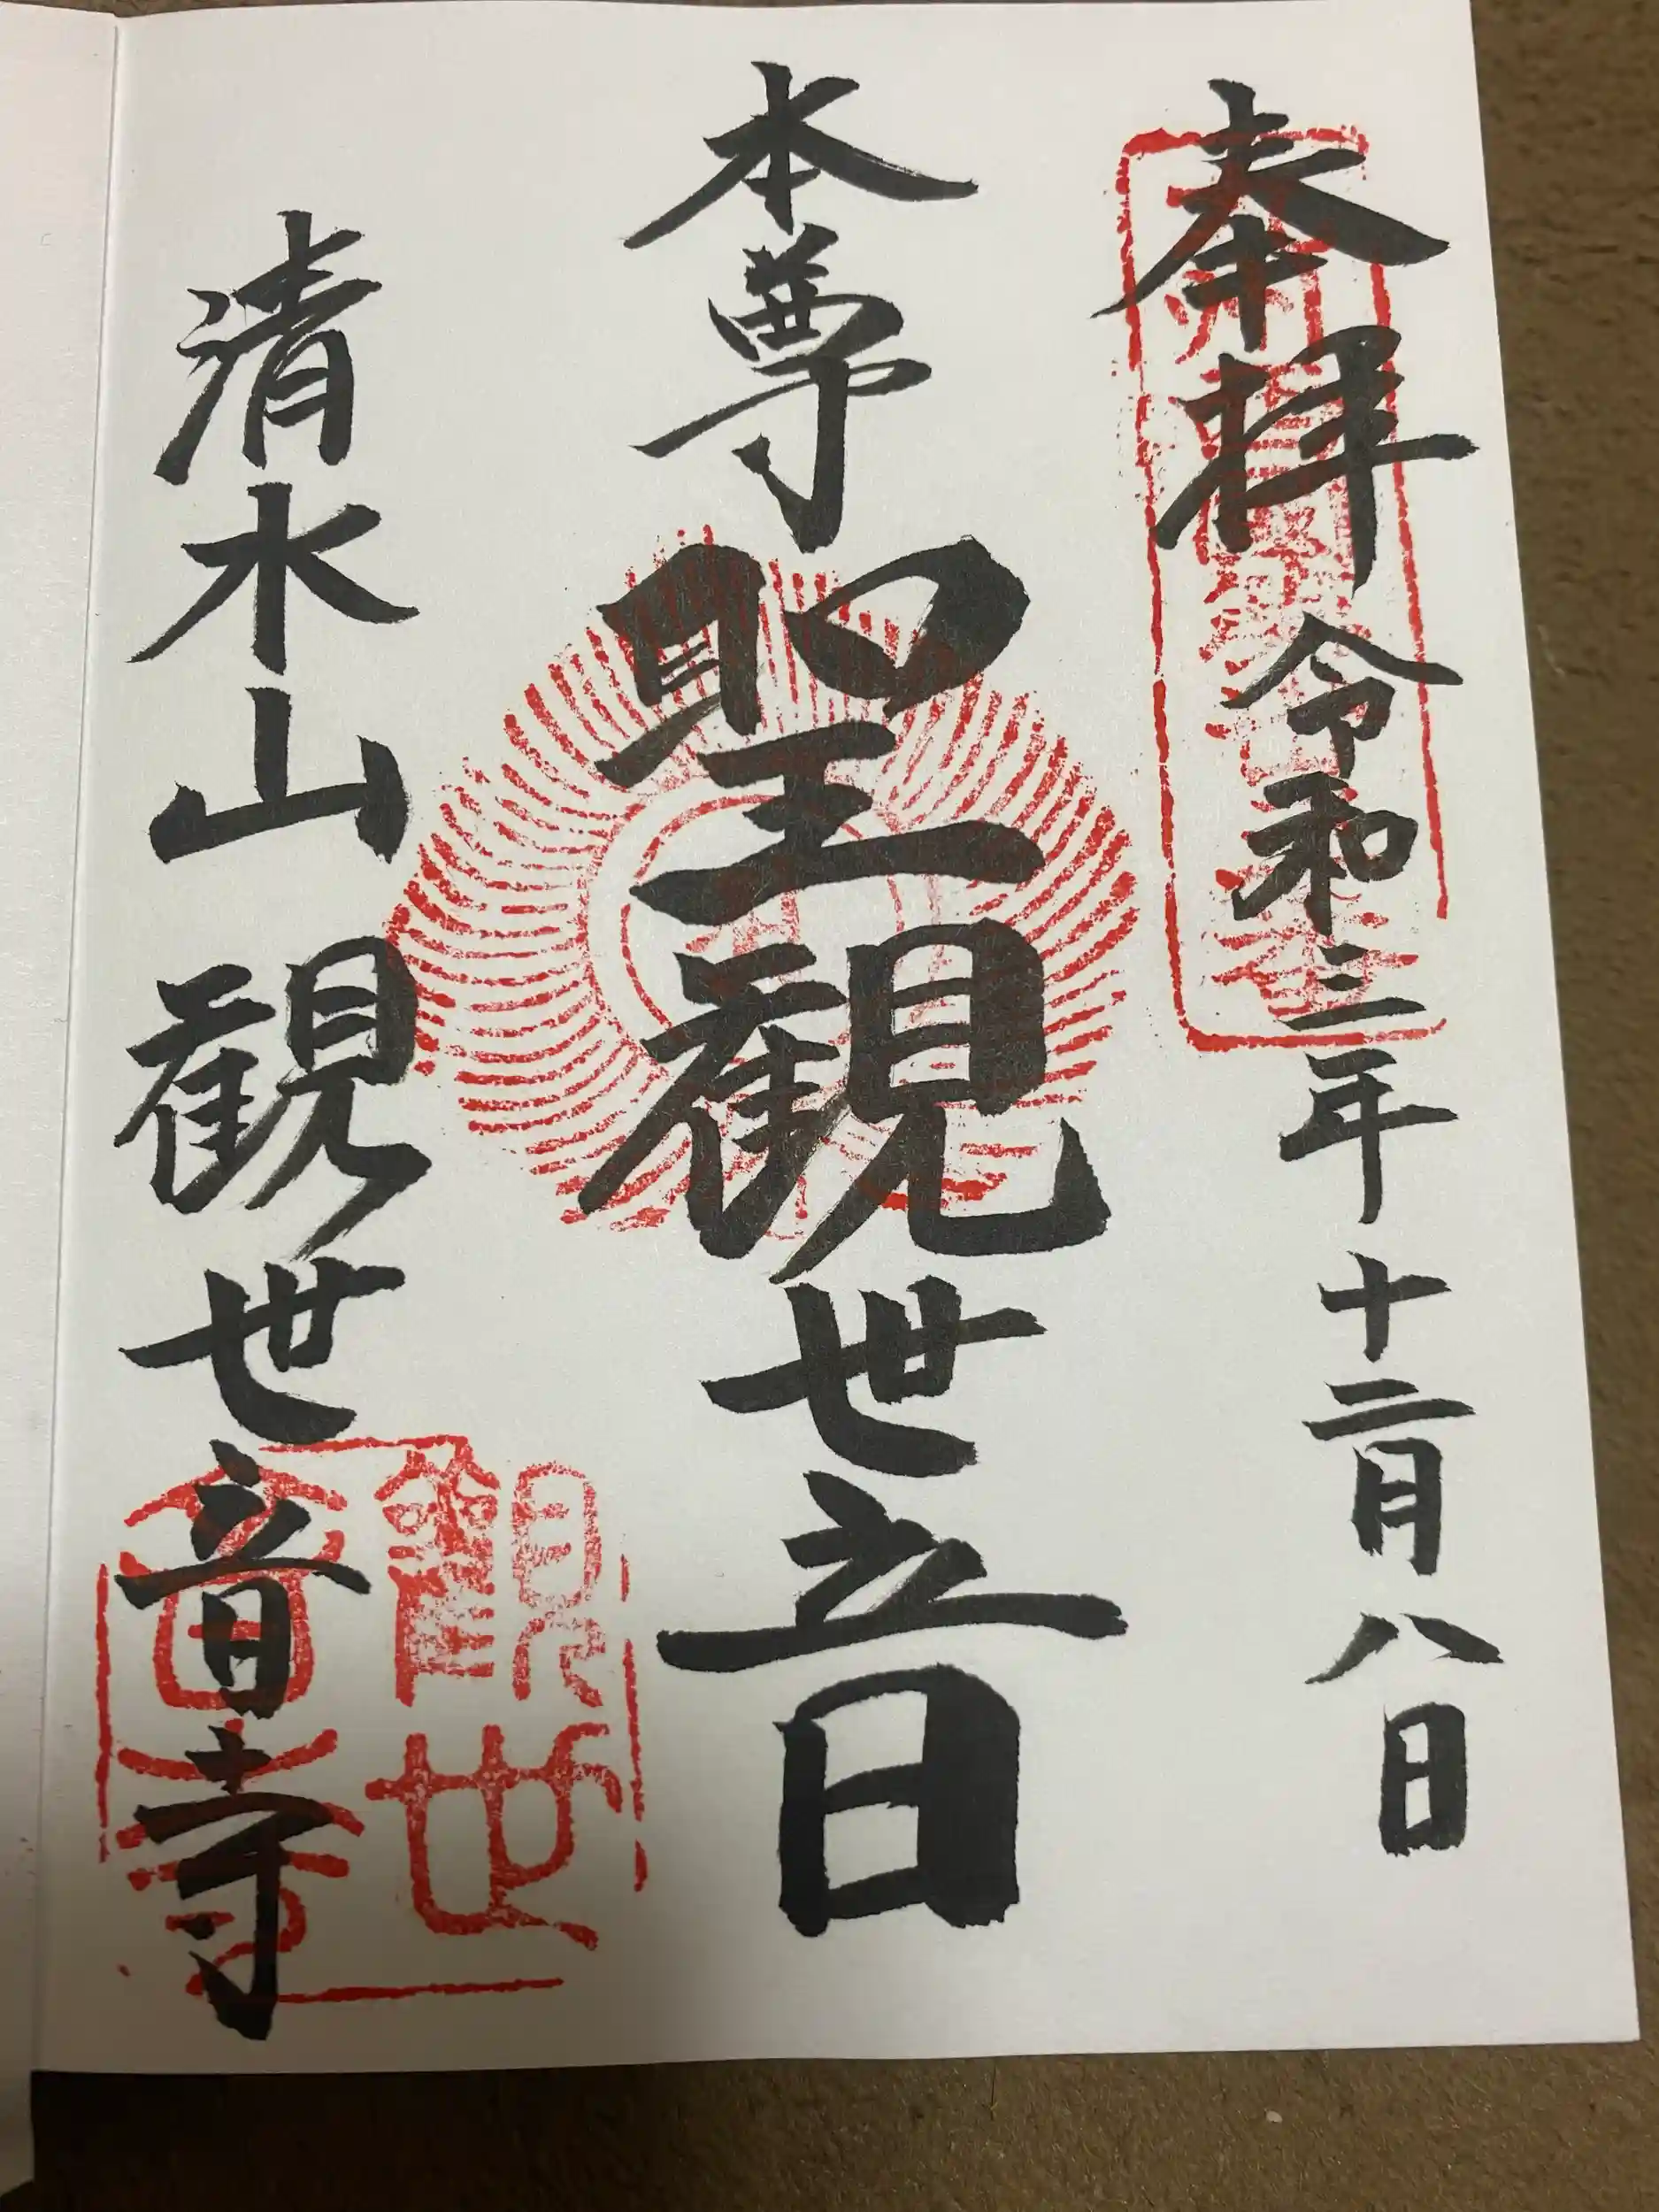 奉拝 令和三年十二月八日
本尊 聖観世音
清水山 観世音寺
觀世音寺